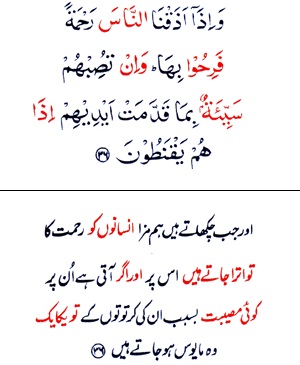 وَاِذَاۤ اَذَقۡنَا النَّاسَ رَحۡمَةً
فَرِحُوۡا بِهَاؕ وَاِنۡ تُصِبۡهُمۡ
سَيِّئَةٌۢ بِمَا قَدَّمَتۡ اَيۡدِيۡهِمۡ اِذَا
هُمۡ يَقۡنَطُوۡنَ ﴿۳۶﴾
اور جب چکھاتے ہیں ہم مزا انسانوں کو رحمت کا
تو اترا جاتے ہیں اس پر اور اگر آتی ہے اُن پر
کوئی مصیبت بسبب ان کی کرتوتوں کے تو یکایک
وہ مایوس ہو جاتے ہیں ﴿۳۶﴾